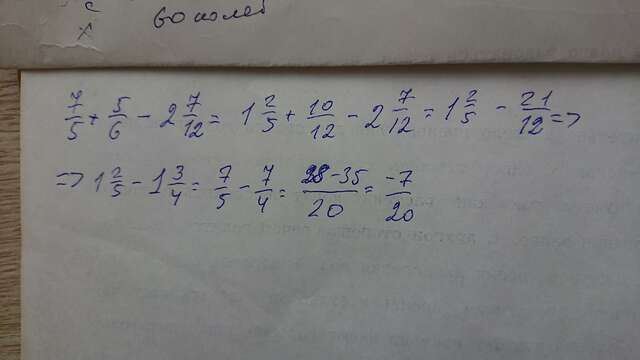 с
х
60 полей
7/5 + 5/6 - 2 7/12 = 1 2/5 + 10/12 - 2 7/12 = 1 2/5 - 21/12 =>
=> 1 2/5 - 1 3/4 = 7/5 - 7/4 = 28-35/20 = -7/20